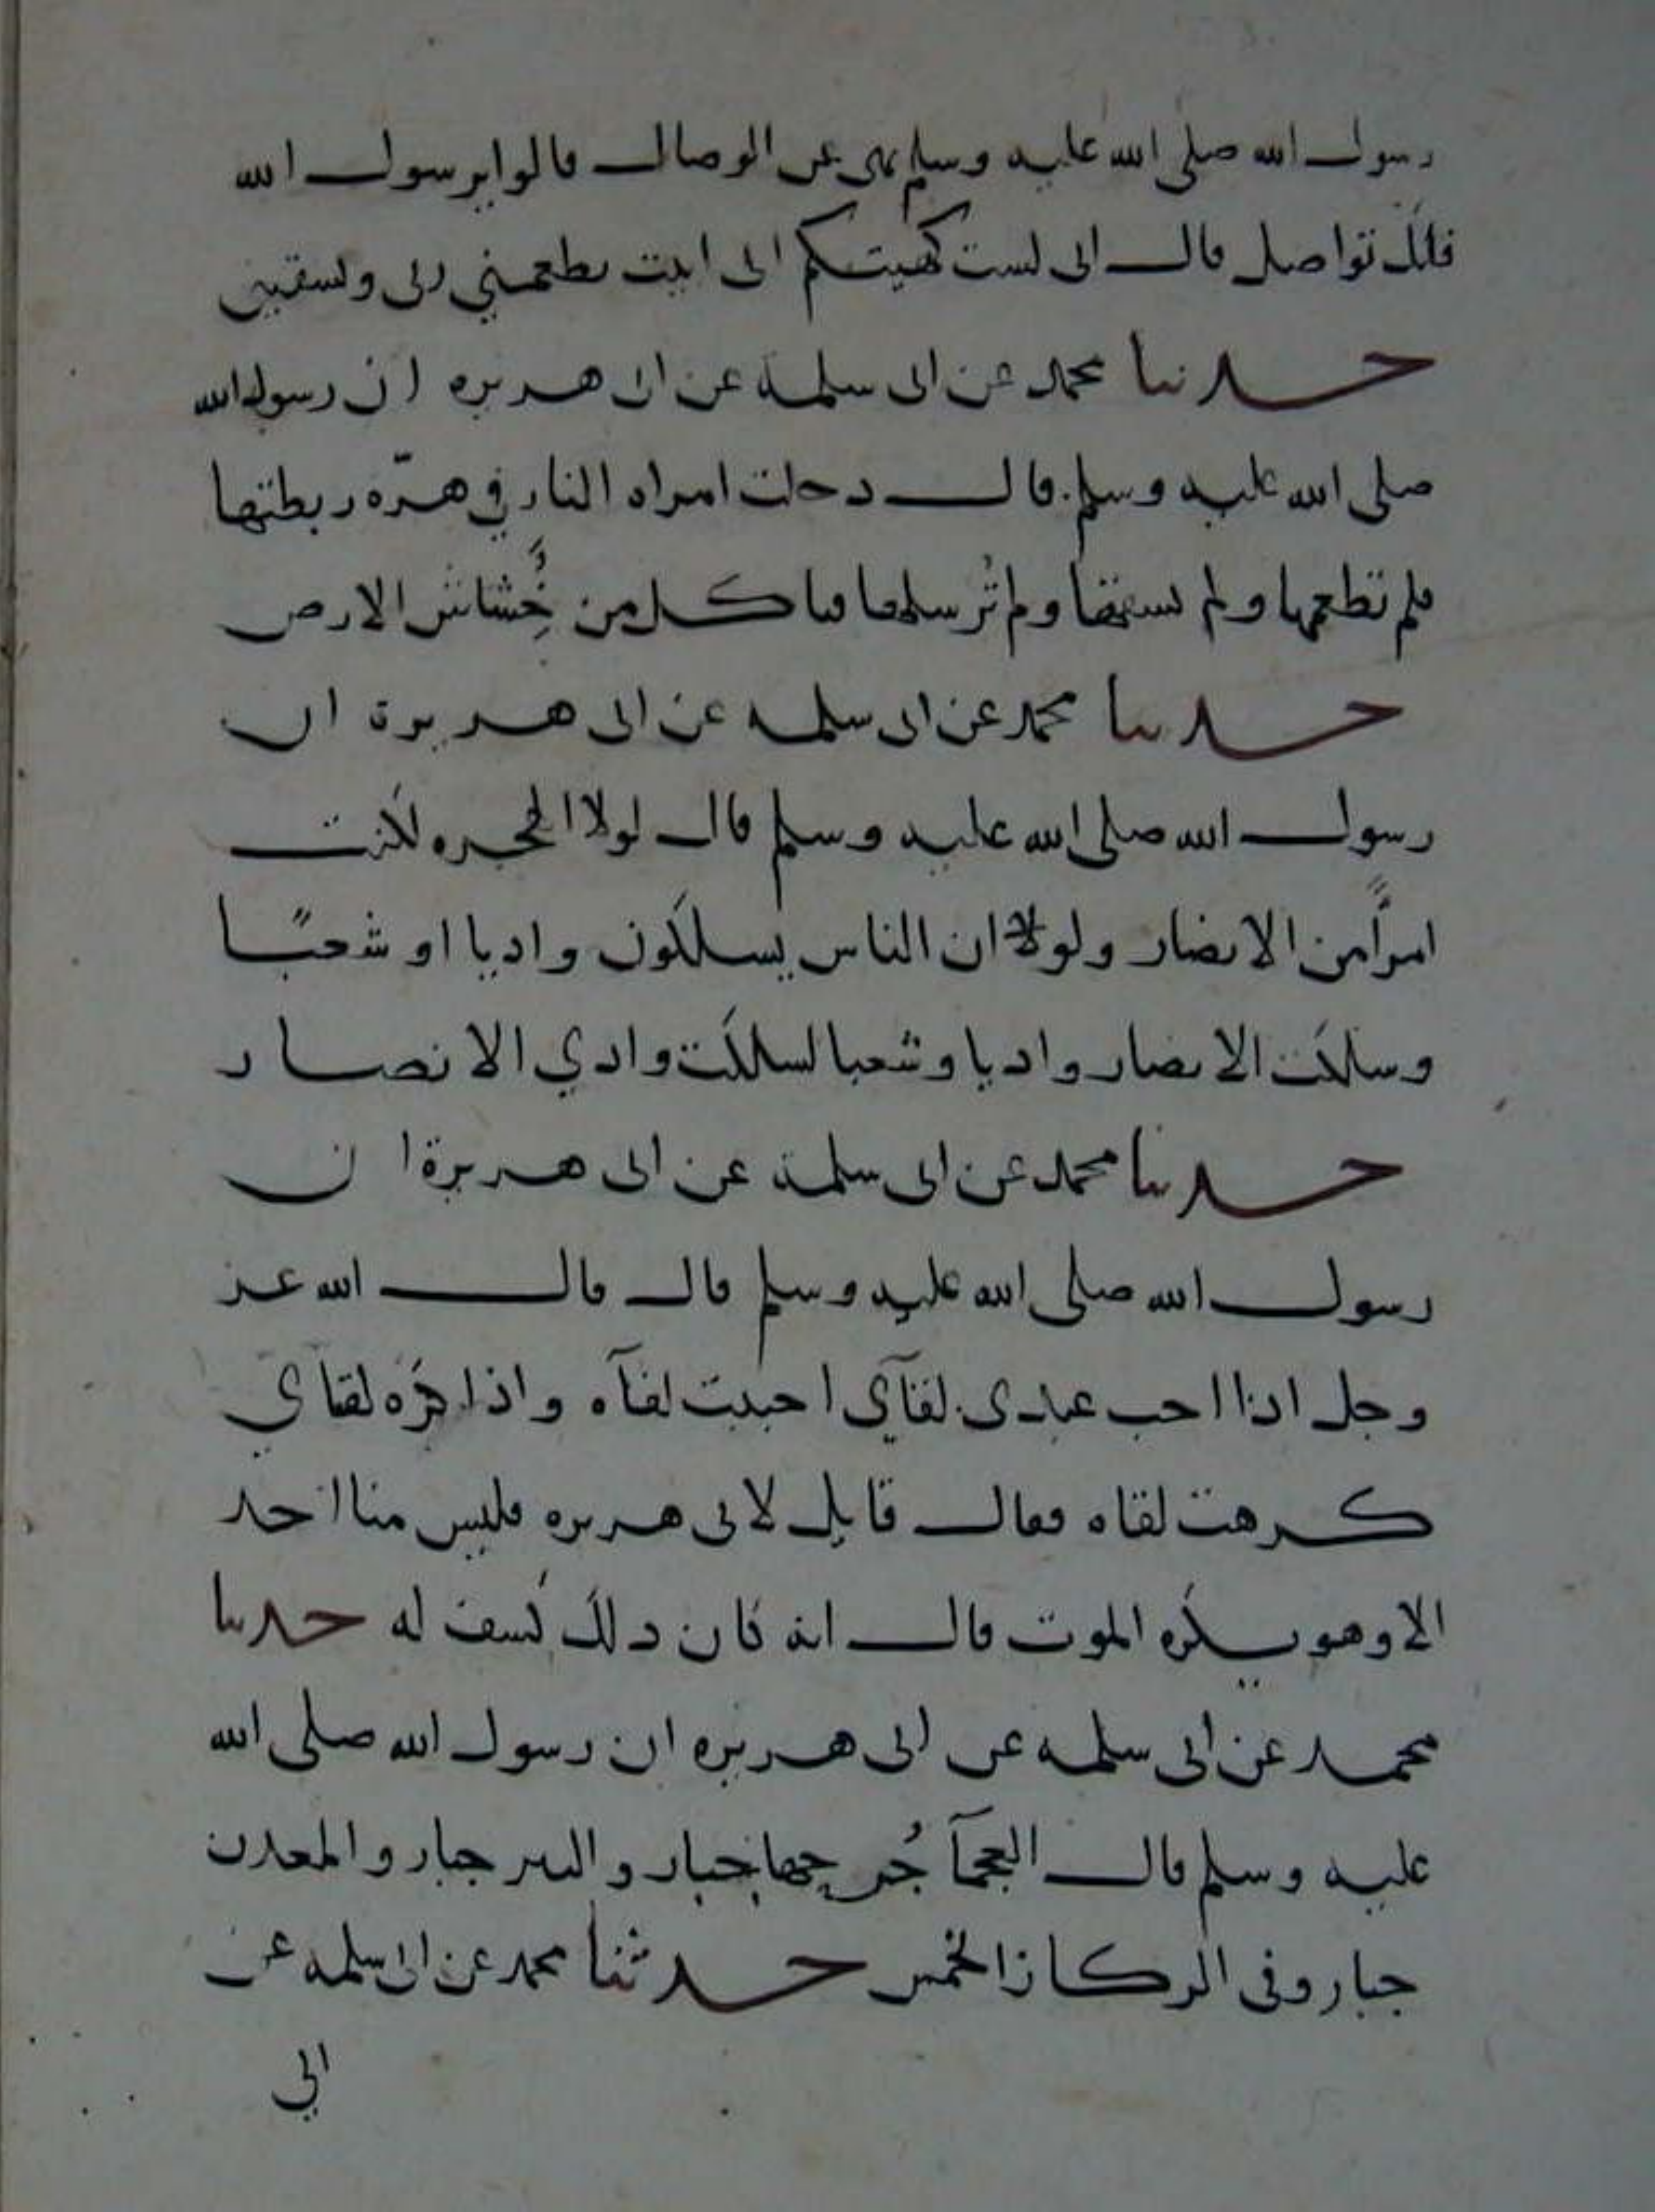 رسول الله صلى الله عليه وسلم نهى عن الوصال قالوا يرسول الله
فانك تواصل قال انى لست كهيتكم انى ابيت يطعمني ربى ويسقين
حدثنا محمد عن ابى سلمة عن ابى هريره ان رسول الله
صلى الله عليه وسلم قال دخلت امراه النار في هرّه ربطتها
فلم تطعمها ولم تسقها ولم تُرسلها فياكل من خُِشاش الارض
حدثنا محمد عن ابى سلمه عن ابى هريرة ان
رسول الله صلى الله عليه وسلم قال لولا الهجره لكنت
امرًا من الانصار ولولا ان الناس يسلكون واديا او شعبًا
وسلكت الانصار واديا وشعبا لسلكت وادي الانصار
حدثنا محمد عن ابى سلمة عن ابى هريرة ان
رسول الله صلى الله عليه وسلم قال قال الله عز
وجل اذا احب عبدى لقآي احببت لقآه واذا كره لقاي
كرهت لقاه فقال قايل لابى هريره فليس منا احد
الا وهو يكره الموت قال انه كان ذلك كشف له حدثنا
محمد عن ابى سلمه عن ابى هريره ان رسول الله صلى الله
عليه وسلم قال العجمآ جُرحها جبار والبير جبار والمعدن
جبار وفى الركاز الخمس حدثنا محمد عن ابى سلمه عن
ابي